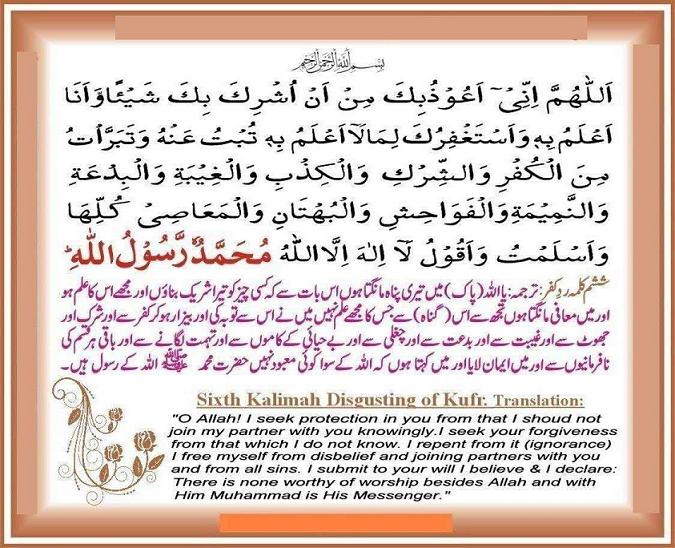 بِسْمِ اللهِ الرَّحْمٰنِ الرَّحِيْمِ
اَللّٰهُمَّ اِنِّیْۤ اَعُوْذُ بِكَ مِنْ اَنْ اُشْرِكَ بِكَ شَيْئًا وَّاَنَا
اَعْلَمُ بِهٖ وَاَسْتَغْفِرُكَ لِمَا لَاۤ اَعْلَمُ بِهٖ تُبْتُ عَنْهُ وَتَبَرَّاْتُ
مِنَ الْكُفْرِ وَالشِّرْكِ وَالْكِذْبِ وَالْغِيْبَةِ وَالْبِدْعَةِ
وَالنَّمِيْمَةِ وَالْفَوَاحِشِ وَالْبُهْتَانِ وَالْمَعَاصِیْ كُلِّهَا
وَاَسْلَمْتُ وَاَقُوْلُ لَاۤ اِلٰهَ اِلَّا اللهُ مُحَمَّدٌ رَّسُوْلُ اللهِ ؕ
ششم کلمہ ردِ کفر: ترجمہ: یا اللہ (پاک) میں تیری پناہ مانگتا ہوں اس بات سے کہ کسی چیز کو تیرا شریک بناؤں اور مجھے اس کا علم ہو
اور میں معافی مانگتا ہوں تجھ سے اس (گناہ) سے جس کا مجھے علم نہیں میں نے اس سے توبہ کی اور بیزار ہو کر کفر سے اور شرک اور
جھوٹ سے اور غیبت سے اور بدعت سے اور چغلی سے اور بے حیائی کے کاموں سے اور تہمت لگانے سے اور باقی ہر قسم کی
نافرمانیوں سے اور میں ایمان لایا اور میں کہتا ہوں کہ اللہ کے سوا کوئی معبود نہیں حضرت محمد ﷺ اللہ کے رسول ہیں۔
Sixth Kalimah Disgusting of Kufr. Translation:
"O Allah! I seek protection in you from that I shoud not
join my partner with you knowingly.I seek your forgiveness
from that which I do not know. I repent from it (ignorance)
I free myself from disbelief and joining partners with you
and from all sins. I submit to your will I believe & I declare:
There is none worthy of worship besides Allah and with
Him Muhammad is His Messenger."